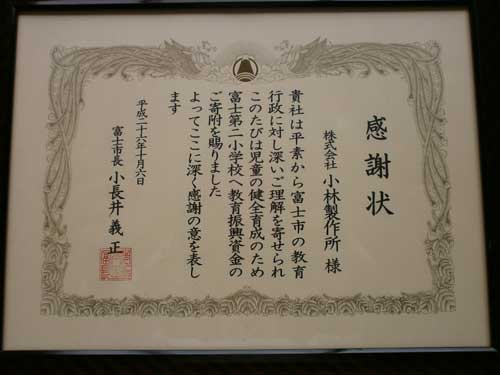 感謝状
株式会社 小林製作所 様
貴社は平素から富士市の教育
行政に対し深いご理解を寄せられ
このたびは児童の健全育成のため
富士第二小学校へ教育振興資金の
ご寄附を賜りました
よってここに深く感謝の意を表し
ます
平成二十六年十月六日
富士市長 小長井義正